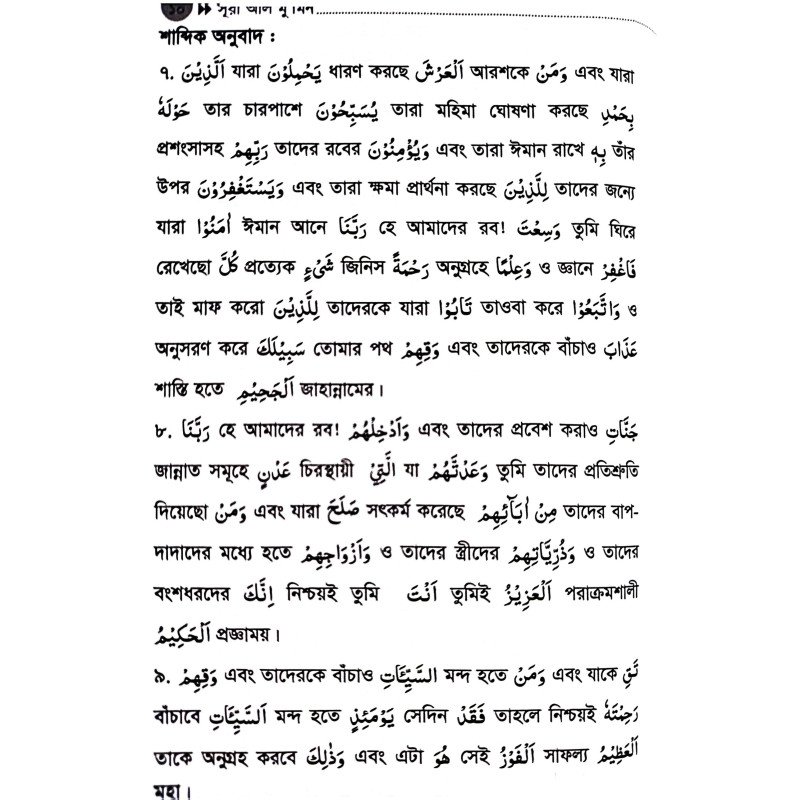 ১০ ▶▶ সূরা আল মু'মিন
শাব্দিক অনুবাদ :
৭. اَلَّذِيْنَ যারা يَحْمِلُوْنَ ধারণ করছে اَلْعَرْشَ আরশকে وَمَنْ এবং যারা
حَوْلَهٗ তার চারপাশে يُسَبِّحُوْنَ তারা মহিমা ঘোষণা করছে بِحَمْدِ
প্রশংসাসহ رَبِّهِمْ তাদের রবের وَيُؤْمِنُوْنَ এবং তারা ঈমান রাখে بِهٖ তাঁর
উপর وَيَسْتَغْفِرُوْنَ এবং তারা ক্ষমা প্রার্থনা করছে لِلَّذِيْنَ তাদের জন্যে
যারা اٰمَنُوْا ঈমান আনে رَبَّنَا হে আমাদের রব! وَسِعْتَ তুমি ঘিরে
রেখেছো كُلَّ প্রত্যেক شَيْءٍ জিনিস رَحْمَةً অনুগ্রহে وَعِلْمًا ও জ্ঞানে فَاغْفِرْ
তাই মাফ করো لِلَّذِيْنَ তাদেরকে যারা تَابُوْا তাওবা করে وَاتَّبَعُوْا ও
অনুসরণ করে سَبِيْلَكَ তোমার পথ وَقِهِمْ এবং তাদেরকে বাঁচাও عَذَابَ
শাস্তি হতে اَلْجَحِيْمِ জাহান্নামের।
৮. رَبَّنَا হে আমাদের রব! وَاَدْخِلْهُمْ এবং তাদের প্রবেশ করাও جَنَّاتِ
জান্নাত সমূহে عَدْنٍ চিরস্থায়ী الَّتِيْ যা وَعَدْتَّهُمْ তুমি তাদের প্রতিশ্রুতি
দিয়েছো وَمَنْ এবং যারা صَلَحَ সৎকর্ম করেছে مِنْ اٰبَآئِهِمْ তাদের বাপ-
দাদাদের মধ্যে হতে وَاَزْوَاجِهِمْ ও তাদের স্ত্রীদের وَذُرِّيَّاتِهِمْ ও তাদের
বংশধরদের اِنَّكَ নিশ্চয়ই তুমি اَنْتَ তুমিই اَلْعَزِيْزُ পরাক্রমশালী
اَلْحَكِيْمُ প্রজ্ঞাময়।
৯. وَقِهِمْ এবং তাদেরকে বাঁচাও السَّيِّئَاتِ মন্দ হতে وَمَنْ এবং যাকে تَقِ
বাঁচাবে اَلسَّيِّئَاتِ মন্দ হতে يَوْمَئِذٍ সেদিন فَقَدْ তাহলে নিশ্চয়ই رَحِمْتَهٗ
তাকে অনুগ্রহ করবে وَذٰلِكَ এবং এটা هُوَ সেই اَلْفَوْزُ সাফল্য اَلْعَظِيْمُ
মহা।